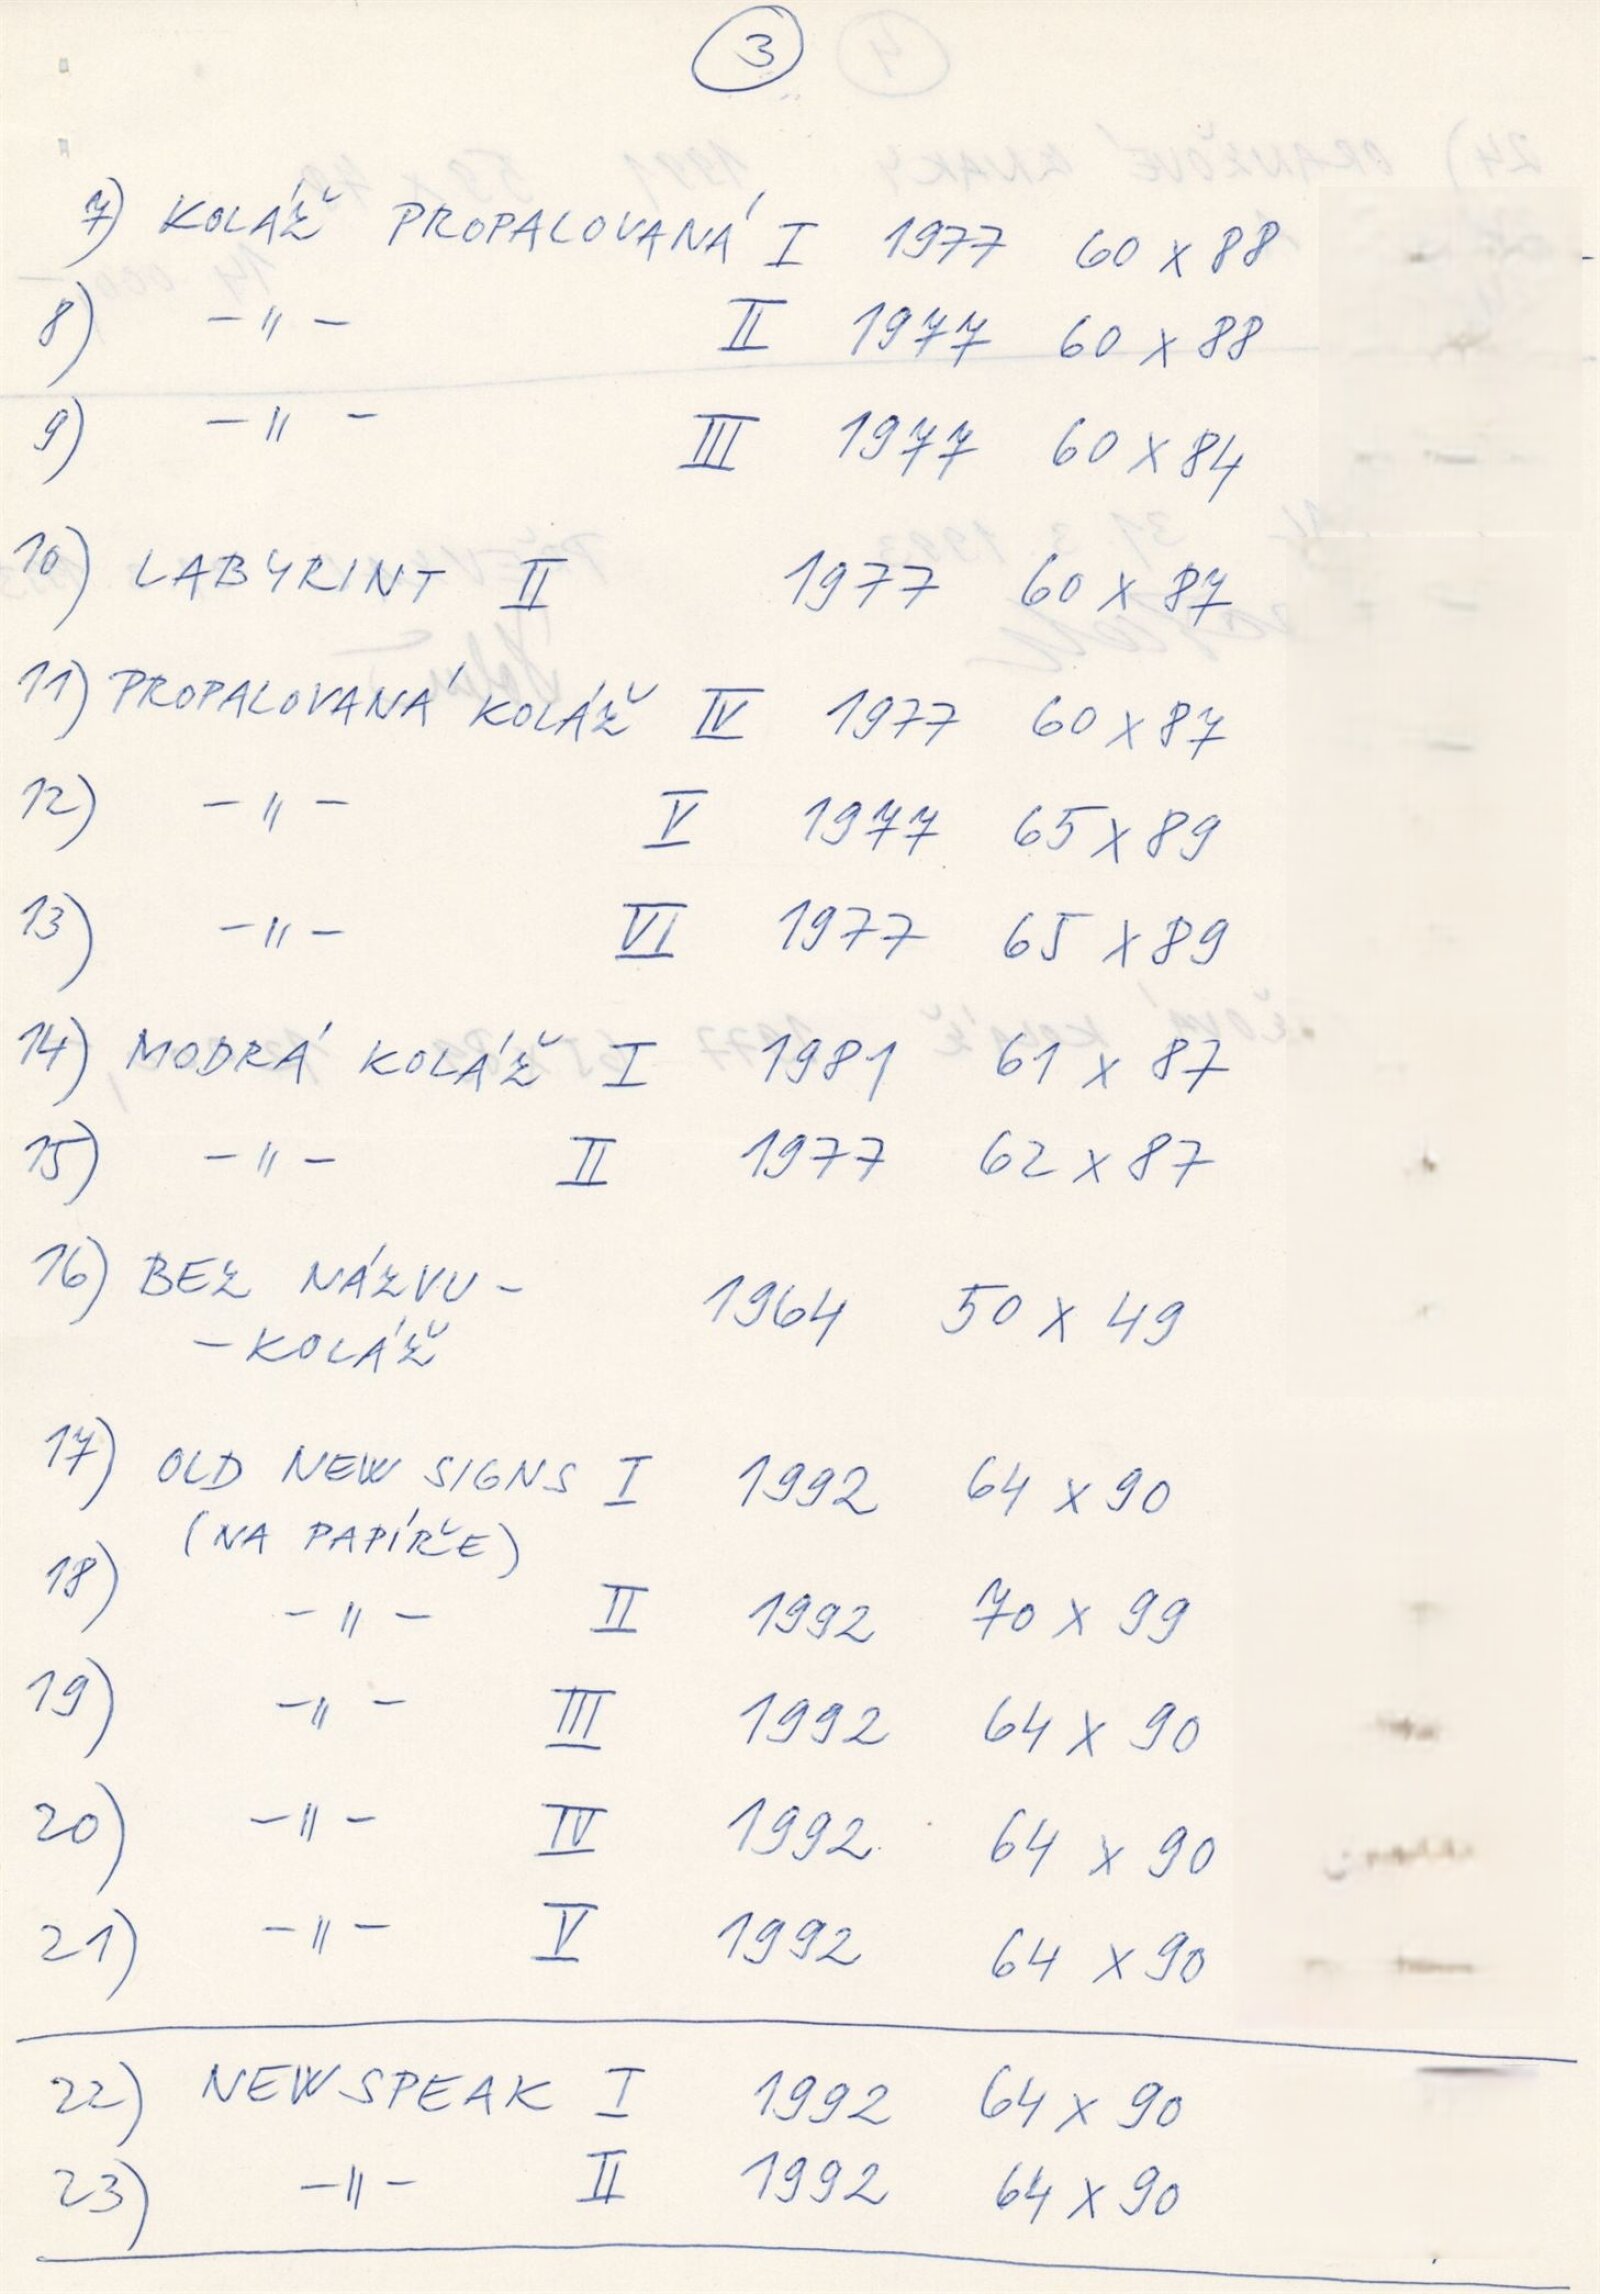 3
7) KOLÁŽ PROPALOVANÁ I 1977 60 x 88
8) -"- II 1977 60 x 88
9) -"- III 1977 60 x 84
10) LABYRINT II 1977 60 x 87
11) PROPALOVANÁ KOLÁŽ IV 1977 60 x 87
12) -"- V 1977 65 x 89
13) -"- VI 1977 65 x 89
14) MODRÁ KOLÁŽ I 1981 61 x 87
15) -"- II 1977 62 x 87
16) BEZ NÁZVU - 1964 50 x 49
- KOLÁŽ
17) OLD NEW SIGNS I 1992 64 x 90
(NA PAPÍŘE)
18) -"- II 1992 70 x 99
19) -"- III 1992 64 x 90
20) -"- IV 1992 64 x 90
21) -"- V 1992 64 x 90
22) NEW SPEAK I 1992 64 x 90
23) -"- II 1992 64 x 90